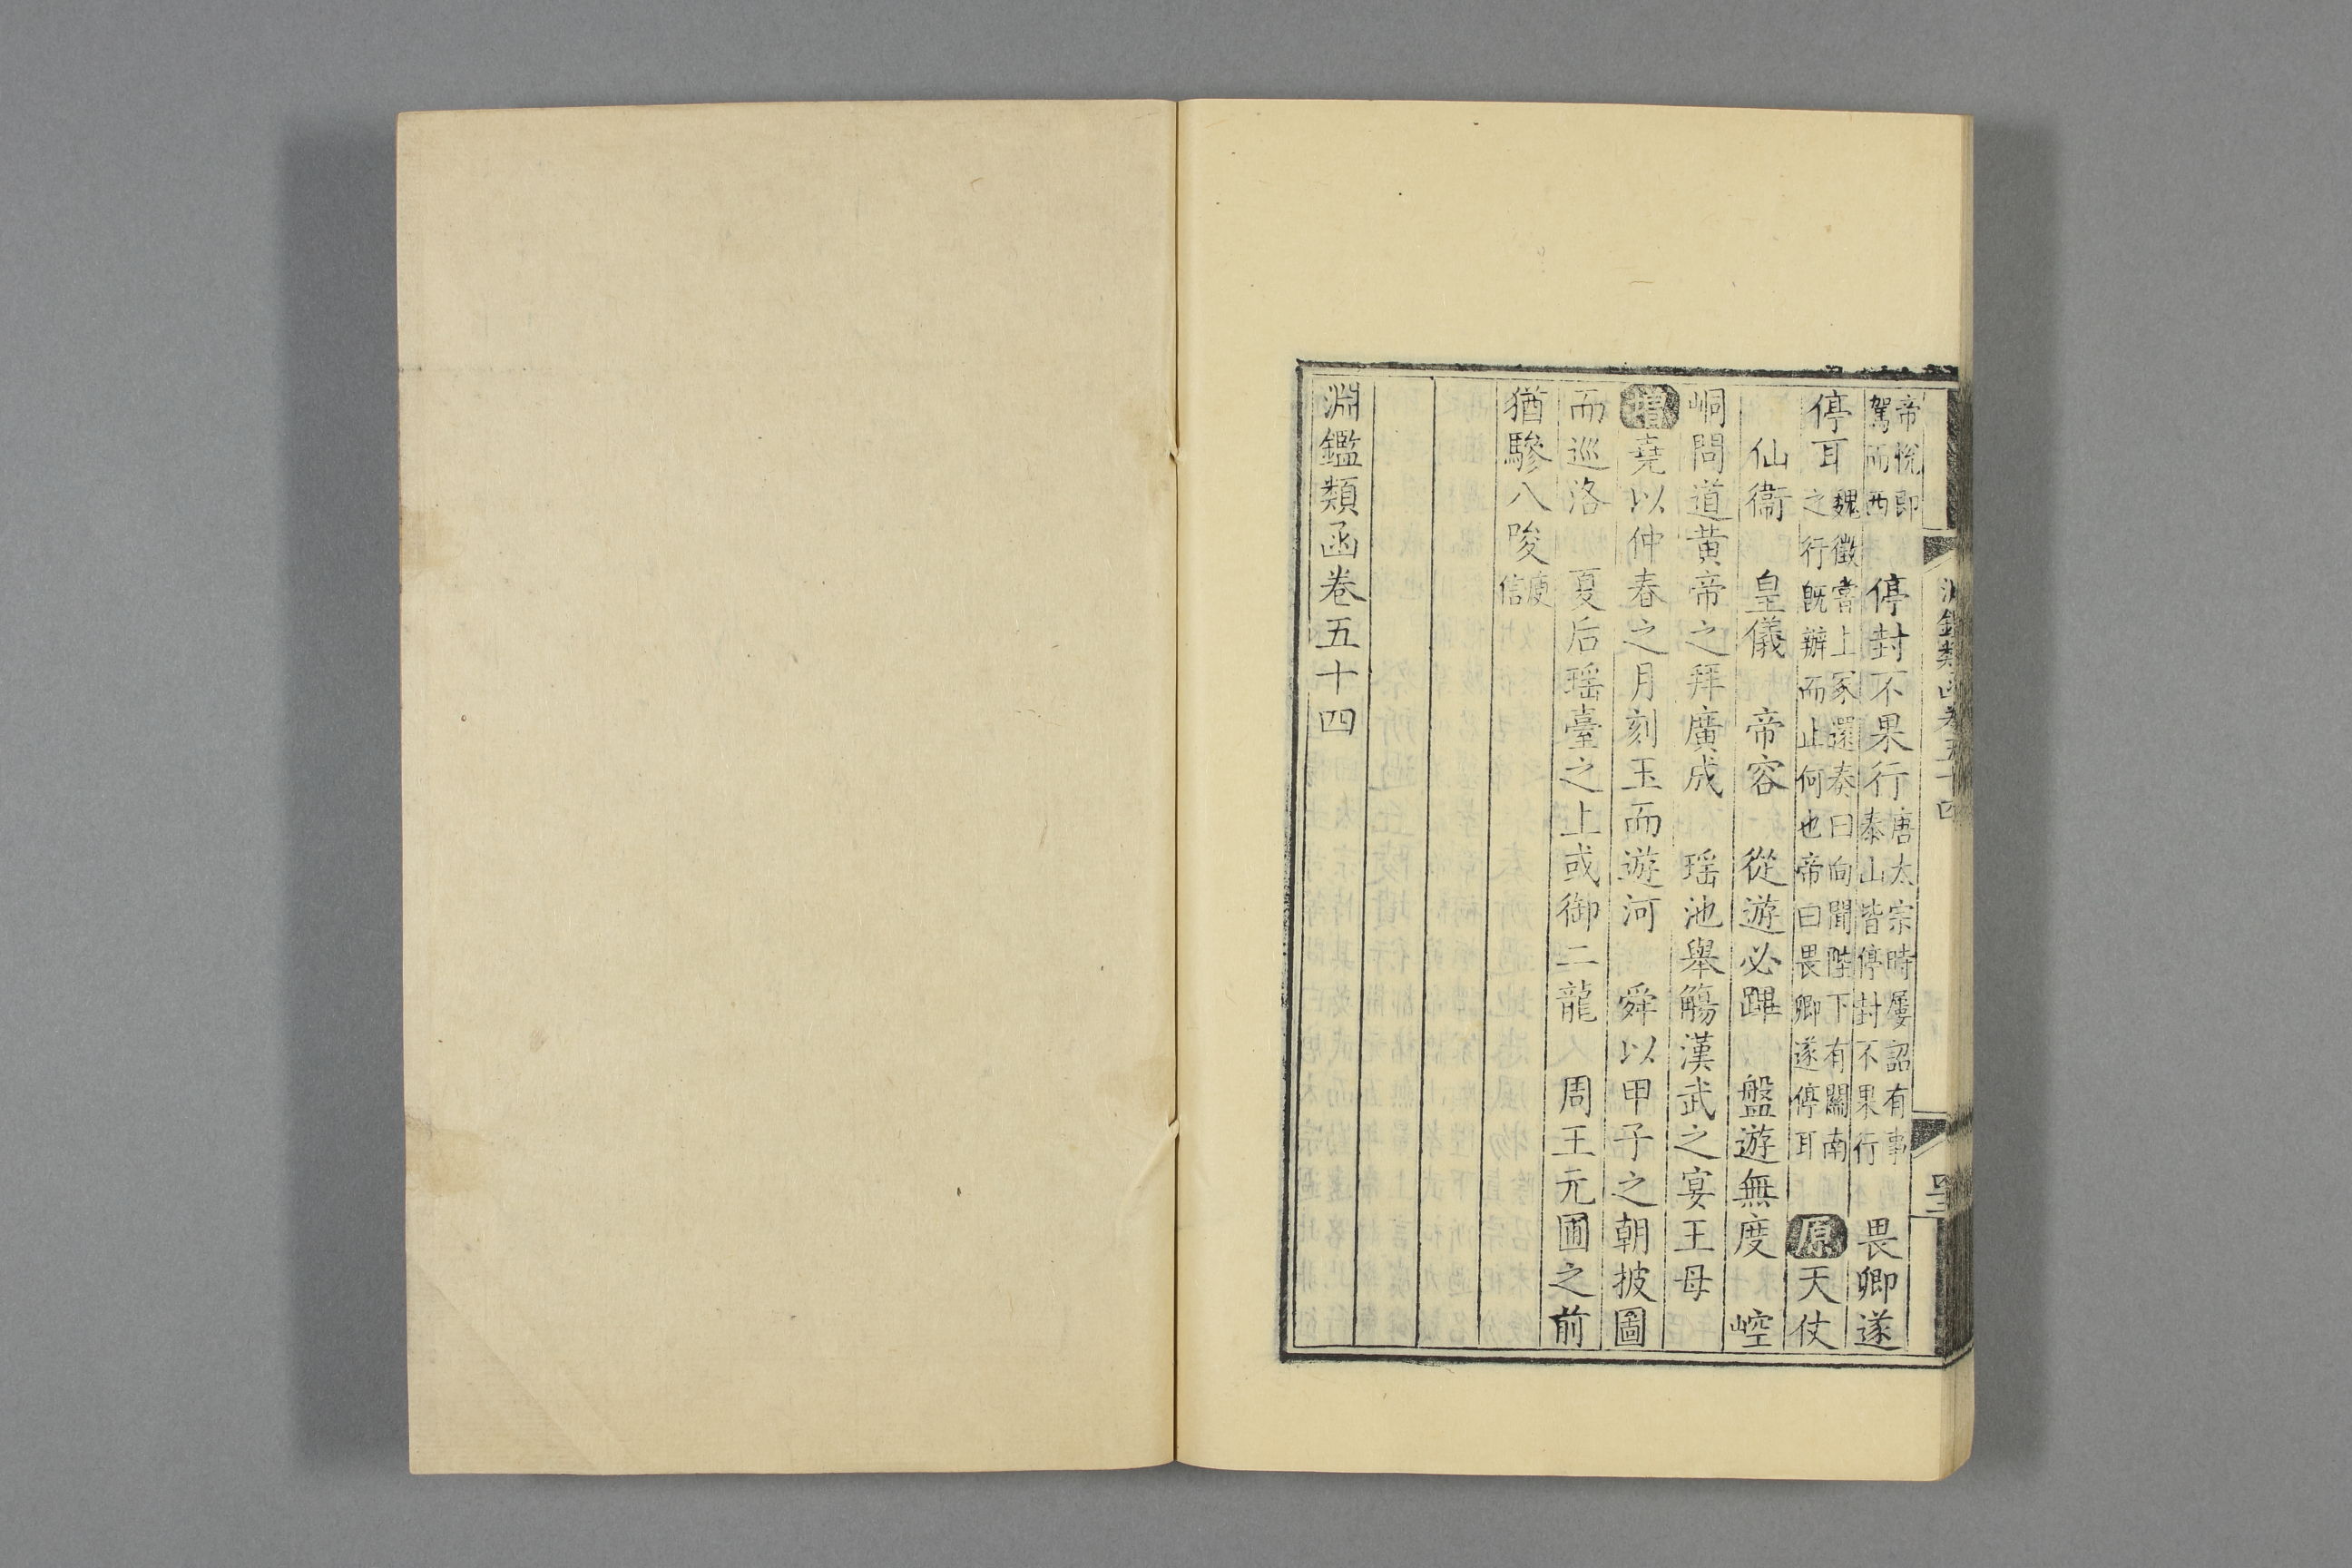 淵鑑類函卷五十四
帝悅卽駕而西 停封不果行 唐太宗時屢詔有事泰山皆停封不果行 畏卿遂
停耳 魏徵嘗上冢還奏曰向聞陛下有關南之行旣辦而止何也帝曰畏卿遂停耳 原 天仗
仙衞 皇儀 帝容 從遊必蹕 盤遊無度 崆
峒問道黃帝之拜廣成 瑤池舉觴漢武之宴王母
增 堯以仲春之月刻玉而遊河 舜以甲子之朝披圖
而巡洛 夏后瑤臺之上或御二龍 周王元圃之前
猶驂八駿 庾信
淵鑑類函卷五十四